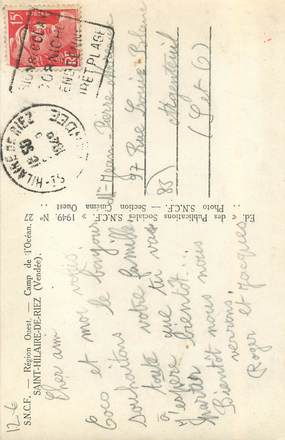 S.N.C.F. — Région Ouest. — Camp de l'Océan.
SAINT-HILAIRE-DE-RIEZ (Vendée).
Cher ami
Coco et moi le bonjour
souhaitons votre famille
à toute que tu vas
J'espère bientôt...
Bientôt nous nous
verrons.
Roger et Jacques
Ed. des Publications Sociales S.N.C.F. — 1949. N° 27
Photo S.N.C.F. — Section Cinéma Ouest
Pierre
97 Rue Louis Blanc
Argenteuil
(S et O)
85)
12-6
15F
ST HILAIRE DE RIEZ
VENDÉE
1949
ET PLAGE